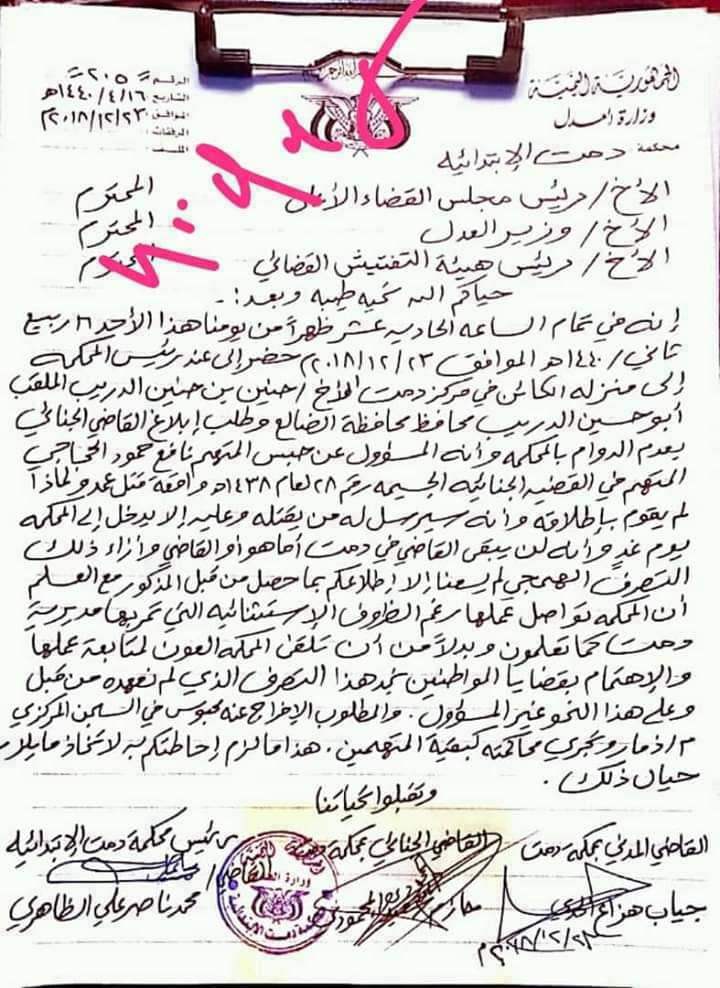 الجمهورية اليمنية
وزارة العدل
محكمة دمت الإبتدائيه
الرقم : ٢٠٥
التاريخ : ١٦/٤/١٤٤٠هـ
الموافق : ٢٣/١٢/٢٠١٨م
المرفقات :
الملف :
الأخ / رئيس مجلس القضاء الأعلى المحترم
الأخ / وزير العدل المحترم
الأخ / رئيس هيئة التفتيش القضائي المحترم
حياكم الله تحيه طيبه وبعد :-
إنه في تمام الساعه الحاديه عشر ظهراً من يومنا هذا الأحد ١٦ ربيع
ثاني / ١٤٤٠هـ الموافق ٢٣/١٢/٢٠١٨م حضر إلى عند رئيس المحكمه
إلى منزله الكائن في مركز دمت الأخ / حنين بن حنين الدريب الملقب
أبو حسين الدريب محافظ محافظة الضالع وطلب إبلاغ القاضي الجنائي
بعدم الدوام بالمحكمه وأنه المسؤول عن حبس المتهم نافع حمود الحجاجي
المتهم في القضيه الجنائيه الجسيمه رقم ٢٨ لعام ١٤٣٨هـ واقعة قتل عمد ولماذا
لم يقوم بإطلاقه وأنه سيرسل له من يقتله وعليه إلا يدخل إلى المحكمه
يوم غدٍ وأنه لن يبقى القاضي في دمت أما هو أو القاضي وإزاء ذلك
التصرف الهمجي لم يسعنا إلا إطلاعكم بما حصل من قبل المذكور مع العلم
أن المحكمه تواصل عملها رغم الظروف الإستثنائيه التي تمر بها مديرية
دمت كما تعلمون وبدلاً من أن تلقى المحكمه العون لمتابعة عملها
والإهتمام بقضايا المواطنين نجد هذا التصرف الذي لم نعهده من قبل
وعلى هذا النحو غير المسؤول . والمطلوب الإفراج عنه محبوس في السجن المركزي
م/ ذمار وتجري محاكمته كبقية المتهمين . هذا ما لزم إحاطتكم به لإتخاذ ما يلزم
حيال ذلك .
وتقبلوا تحياتنا
القاضي المدني بمحكمة دمت
جياب هزاع
القاضي الجنائي بمحكمة دمت
رئيس محكمة دمت الإبتدائيه
القاضي /
محمد ناصر علي الظاهري